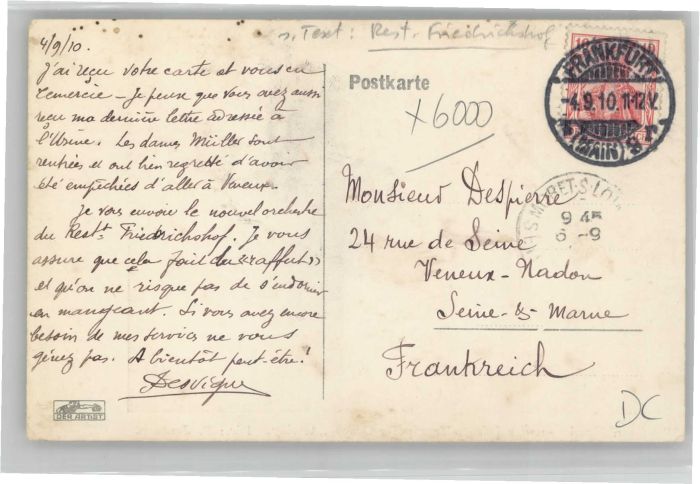 s. Text: Rest. Friedrichshof
4/9/10.
J'ai reçu votre carte et vous en
remercie – Je pense que vous avez aussi
reçu ma dernière lettre adressée à
l'Usine. Les dames Müller sont
rentrées et ont bien regretté d'avoir
été empêchées d'aller à Veneux.
Je vous envoie le nouvel orchestre
du Restt Friedrichshof. Je vous
assure que cela fait du "raffut"
et qu'on ne risque pas de s'endormir
en mangeant. Si vous avez encore
besoin de mes services ne vous
gênez pas. A bientôt peut-être!
Desvigne
DER ARTIST
Postkarte
x 6000
FRANKFURT
-4.9.10.11-12V.
(MAIN)
MORET-S-LOING
9 45
6 -9
Monsieur Despierre
24 rue de Seine
Veneux-Nadon
Seine-&-Marne
Frankreich
DC